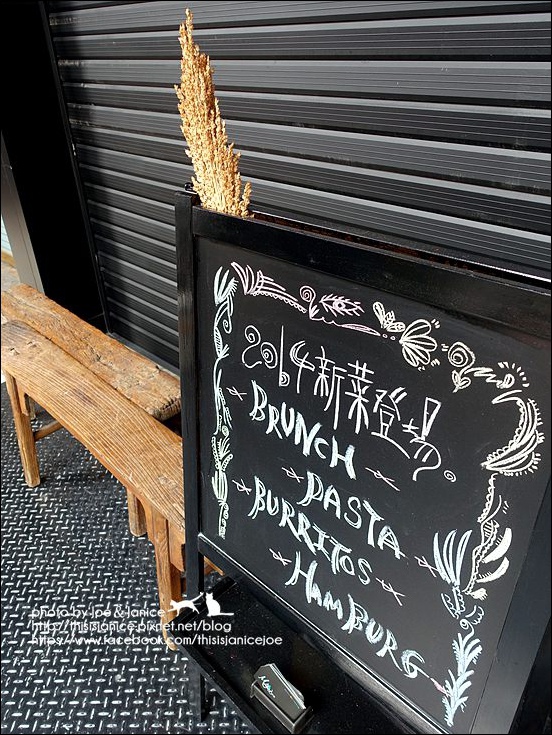 2014新菜登場!
BRUNCH
PASTA
BURRITOS
HAMBURG
photo by Joe & Janice
http://thisisjanice.pixnet.net/blog
https://www.facebook.com/thisisjanicejoe